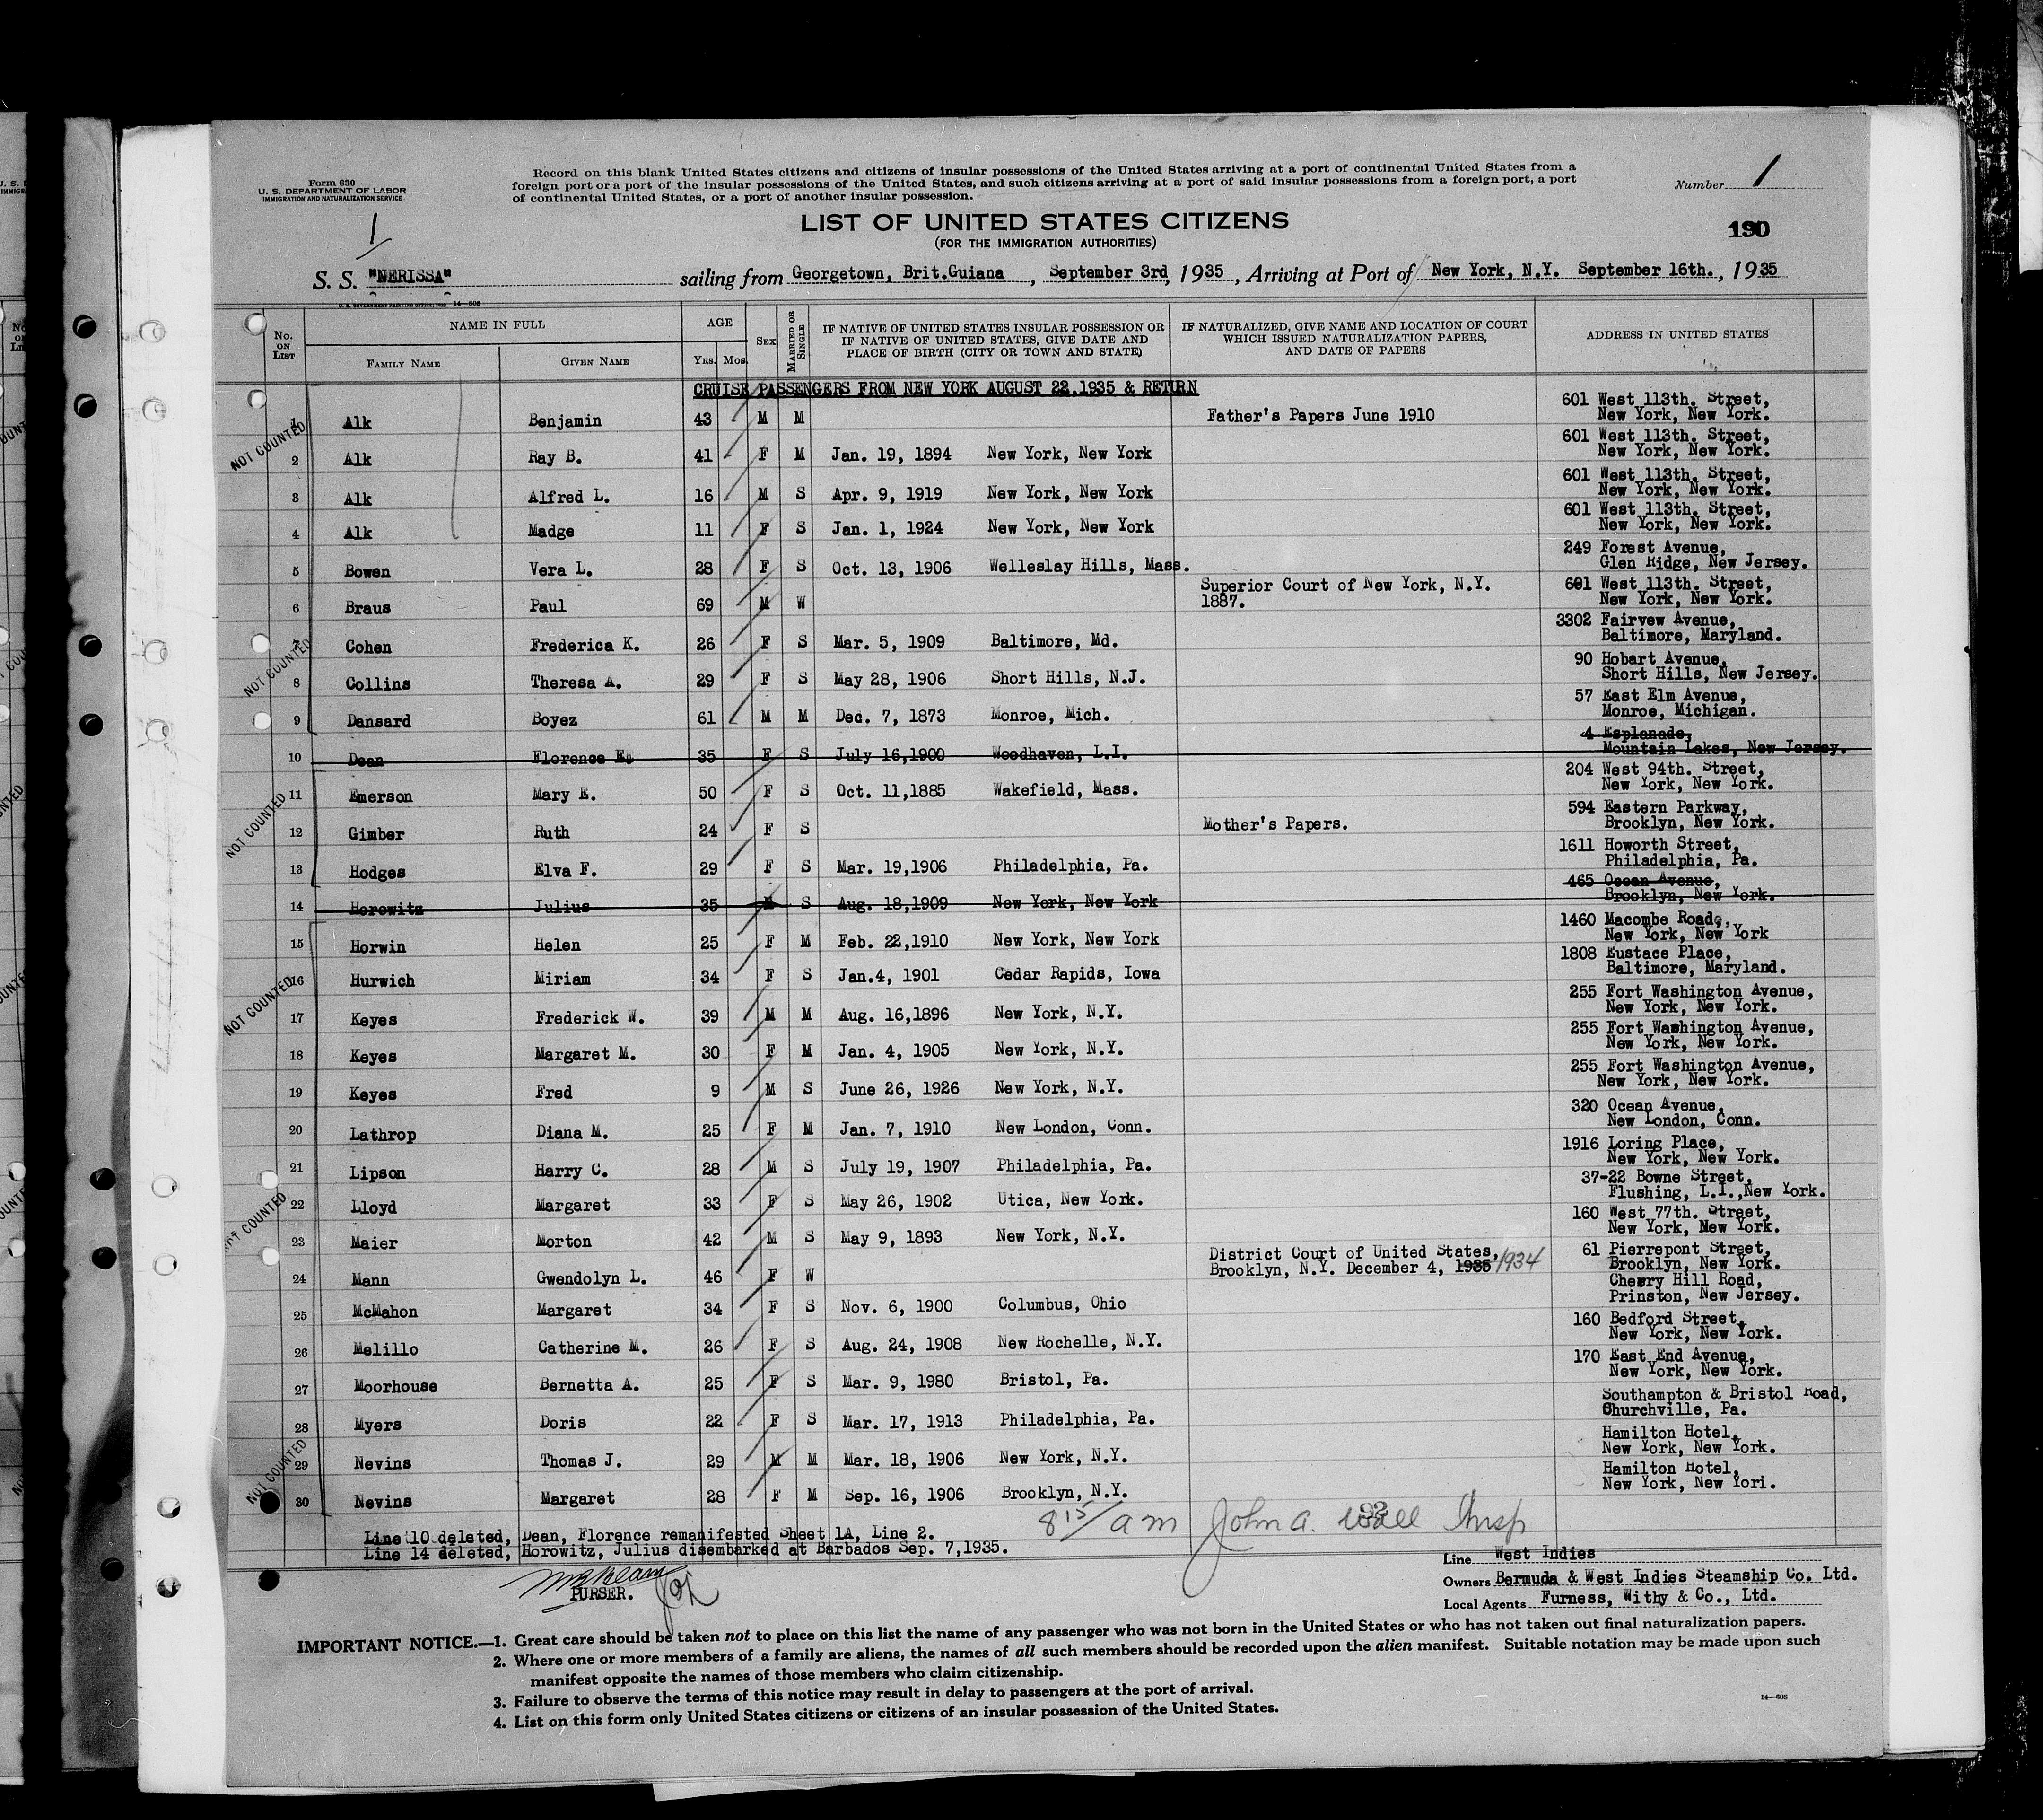 Form 630
U. S. DEPARTMENT OF LABOR
IMMIGRATION AND NATURALIZATION SERVICE
Record on this blank United States citizens and citizens of insular possessions of the United States arriving at a port of continental United States from a
foreign port or a port of the insular possessions of the United States, and such citizens arriving at a port of said insular possessions from a foreign port, a port
of continental United States, or a port of another insular possession.
Number 1
1
LIST OF UNITED STATES CITIZENS
(FOR THE IMMIGRATION AUTHORITIES)
190
S. S. "NERISSA" sailing from Georgetown, Brit.Guiana, September 3rd, 1935, Arriving at Port of New York, N.Y. September 16th., 1935
U. S. GOVERNMENT PRINTING OFFICE: 14—608
No. ON LIST NAME IN FULL AGE SEX MARRIED OR SINGLE IF NATIVE OF UNITED STATES INSULAR POSSESSION OR IF NATIVE OF UNITED STATES, GIVE DATE AND PLACE OF BIRTH (CITY OR TOWN AND STATE) IF NATURALIZED, GIVE NAME AND LOCATION OF COURT WHICH ISSUED NATURALIZATION PAPERS, AND DATE OF PAPERS ADDRESS IN UNITED STATES
FAMILY NAME GIVEN NAME YRS. MOS.
CRUISE PASSENGERS FROM NEW YORK AUGUST 22,1935 & RETURN
1 Alk Benjamin 43 M M Father's Papers June 1910 601 West 113th. Street, New York, New York.
NOT COUNTED
2 Alk Ray B. 41 F M Jan. 19, 1894 New York, New York 601 West 113th. Street, New York, New York.
3 Alk Alfred L. 16 M S Apr. 9, 1919 New York, New York 601 West 113th. Street, New York, New York.
4 Alk Madge 11 F S Jan. 1, 1924 New York, New York 601 West 113th. Street, New York, New York.
5 Bowen Vera L. 28 F S Oct. 13, 1906 Welleslay Hills, Mass. 249 Forest Avenue, Glen Ridge, New Jersey.
6 Braus Paul 69 M W Superior Court of New York, N.Y. 1887. 601 West 113th. Street, New York, New York.
7 Cohen Frederica K. 26 F S Mar. 5, 1909 Baltimore, Md. 3302 Fairvew Avenue, Baltimore, Maryland.
NOT COUNTED
8 Collins Theresa A. 29 F S May 28, 1906 Short Hills, N.J. 90 Hobart Avenue, Short Hills, New Jersey.
9 Dansard Boyez 61 M M Dec. 7, 1873 Monroe, Mich. 57 East Elm Avenue, Monroe, Michigan.
10 Dean Florence E. 35 F S July 16,1900 Woodhaven, L.I. 4 Esplanade, Mountain Lakes, New Jersey.
11 Emerson Mary E. 50 F S Oct. 11,1885 Wakefield, Mass. 204 West 94th. Street, New York, New York.
NOT COUNTED
12 Gimber Ruth 24 F S Mother's Papers. 594 Eastern Parkway, Brooklyn, New York.
13 Hodges Elva F. 29 F S Mar. 19,1906 Philadelphia, Pa. 1611 Howorth Street, Philadelphia, Pa.
14 Horowitz Julius 35 M S Aug. 18,1909 New York, New York 465 Ocean Avenue, Brooklyn, New York.
15 Horwin Helen 25 F M Feb. 22,1910 New York, New York 1460 Macombe Road, New York, New York
16 Hurwich Miriam 34 F S Jan.4, 1901 Cedar Rapids, Iowa 1808 Eustace Place, Baltimore, Maryland.
NOT COUNTED
17 Keyes Frederick W. 39 M M Aug. 16,1896 New York, N.Y. 255 Fort Washington Avenue, New York, New York.
18 Keyes Margaret M. 30 F M Jan. 4, 1905 New York, N.Y. 255 Fort Washington Avenue, New York, New York.
19 Keyes Fred 9 M S June 26, 1926 New York, N.Y. 255 Fort Washington Avenue, New York, New York.
20 Lathrop Diana M. 25 F M Jan. 7, 1910 New London, Conn. 320 Ocean Avenue, New London, Conn.
21 Lipson Harry C. 28 M S July 19, 1907 Philadelphia, Pa. 1916 Loring Place, New York, New York.
22 Lloyd Margaret 33 F S May 26, 1902 Utica, New York. 37-22 Bowne Street, Flushing, L.I.,New York.
NOT COUNTED
23 Maier Morton 42 M S May 9, 1893 New York, N.Y. 160 West 77th. Street, New York, New York.
24 Mann Gwendolyn L. 46 F W District Court of United States, Brooklyn, N.Y. December 4, 1935 1934 61 Pierrepont Street, Brooklyn, New York.
25 McMahon Margaret 34 F S Nov. 6, 1900 Columbus, Ohio Cherry Hill Road, Prinston, New Jersey.
26 Melillo Catherine M. 26 F S Aug. 24, 1908 New Rochelle, N.Y. 160 Bedford Street, New York, New York.
27 Moorhouse Bernetta A. 25 F S Mar. 9, 1980 Bristol, Pa. 170 East End Avenue, New York, New York.
28 Myers Doris 22 F S Mar. 17, 1913 Philadelphia, Pa. Southampton & Bristol Road, Churchville, Pa.
29 Nevins Thomas J. 29 M M Mar. 18, 1906 New York, N.Y. Hamilton Hotel, New York, New York.
NOT COUNTED
30 Nevins Margaret 28 F M Sep. 16, 1906 Brooklyn, N.Y. Hamilton Hotel, New York, New Yori.
8 15/ am John A. Wall Insp
Line 10 deleted, Dean, Florence remanifested Sheet 1A, Line 2.
Line 14 deleted, Horowitz, Julius disembarked at Barbados Sep. 7,1935.
PURSER.
Line West Indies
Owners Bermuda & West Indies Steamship Co. Ltd.
Local Agents Furness, Withy & Co., Ltd.
IMPORTANT NOTICE.—1. Great care should be taken not to place on this list the name of any passenger who was not born in the United States or who has not taken out final naturalization papers.
2. Where one or more members of a family are aliens, the names of all such members should be recorded upon the alien manifest. Suitable notation may be made upon such
manifest opposite the names of those members who claim citizenship.
3. Failure to observe the terms of this notice may result in delay to passengers at the port of arrival.
4. List on this form only United States citizens or citizens of an insular possession of the United States.
14—608